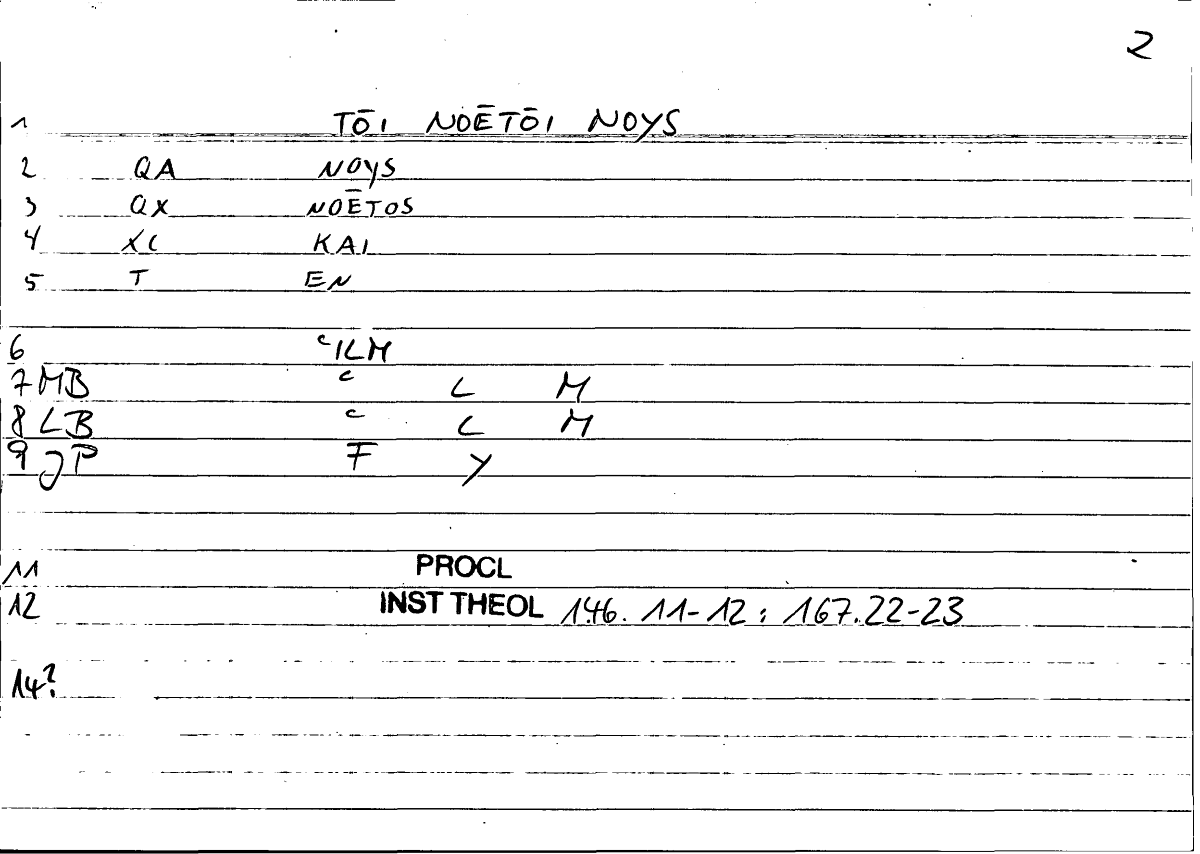 2
1 TŌI NOĒTŌI NOYS
2 QA NOYS
3 QX NOĒTOS
4 XC KAI
5 T EN
6 ʿILM
7 MB ʿ L M
8 LB ʿ L M
9 JP F Y
11 PROCL
12 INST THEOL 146. 11-12 : 167.22-23
14?